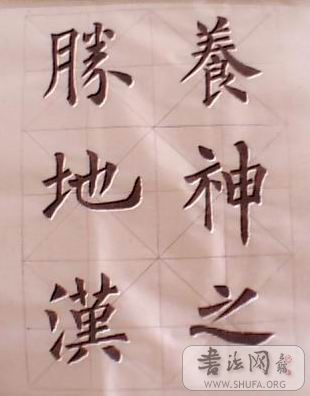 養神之
勝地漢
書法网
WWW.SHUFA.ORG